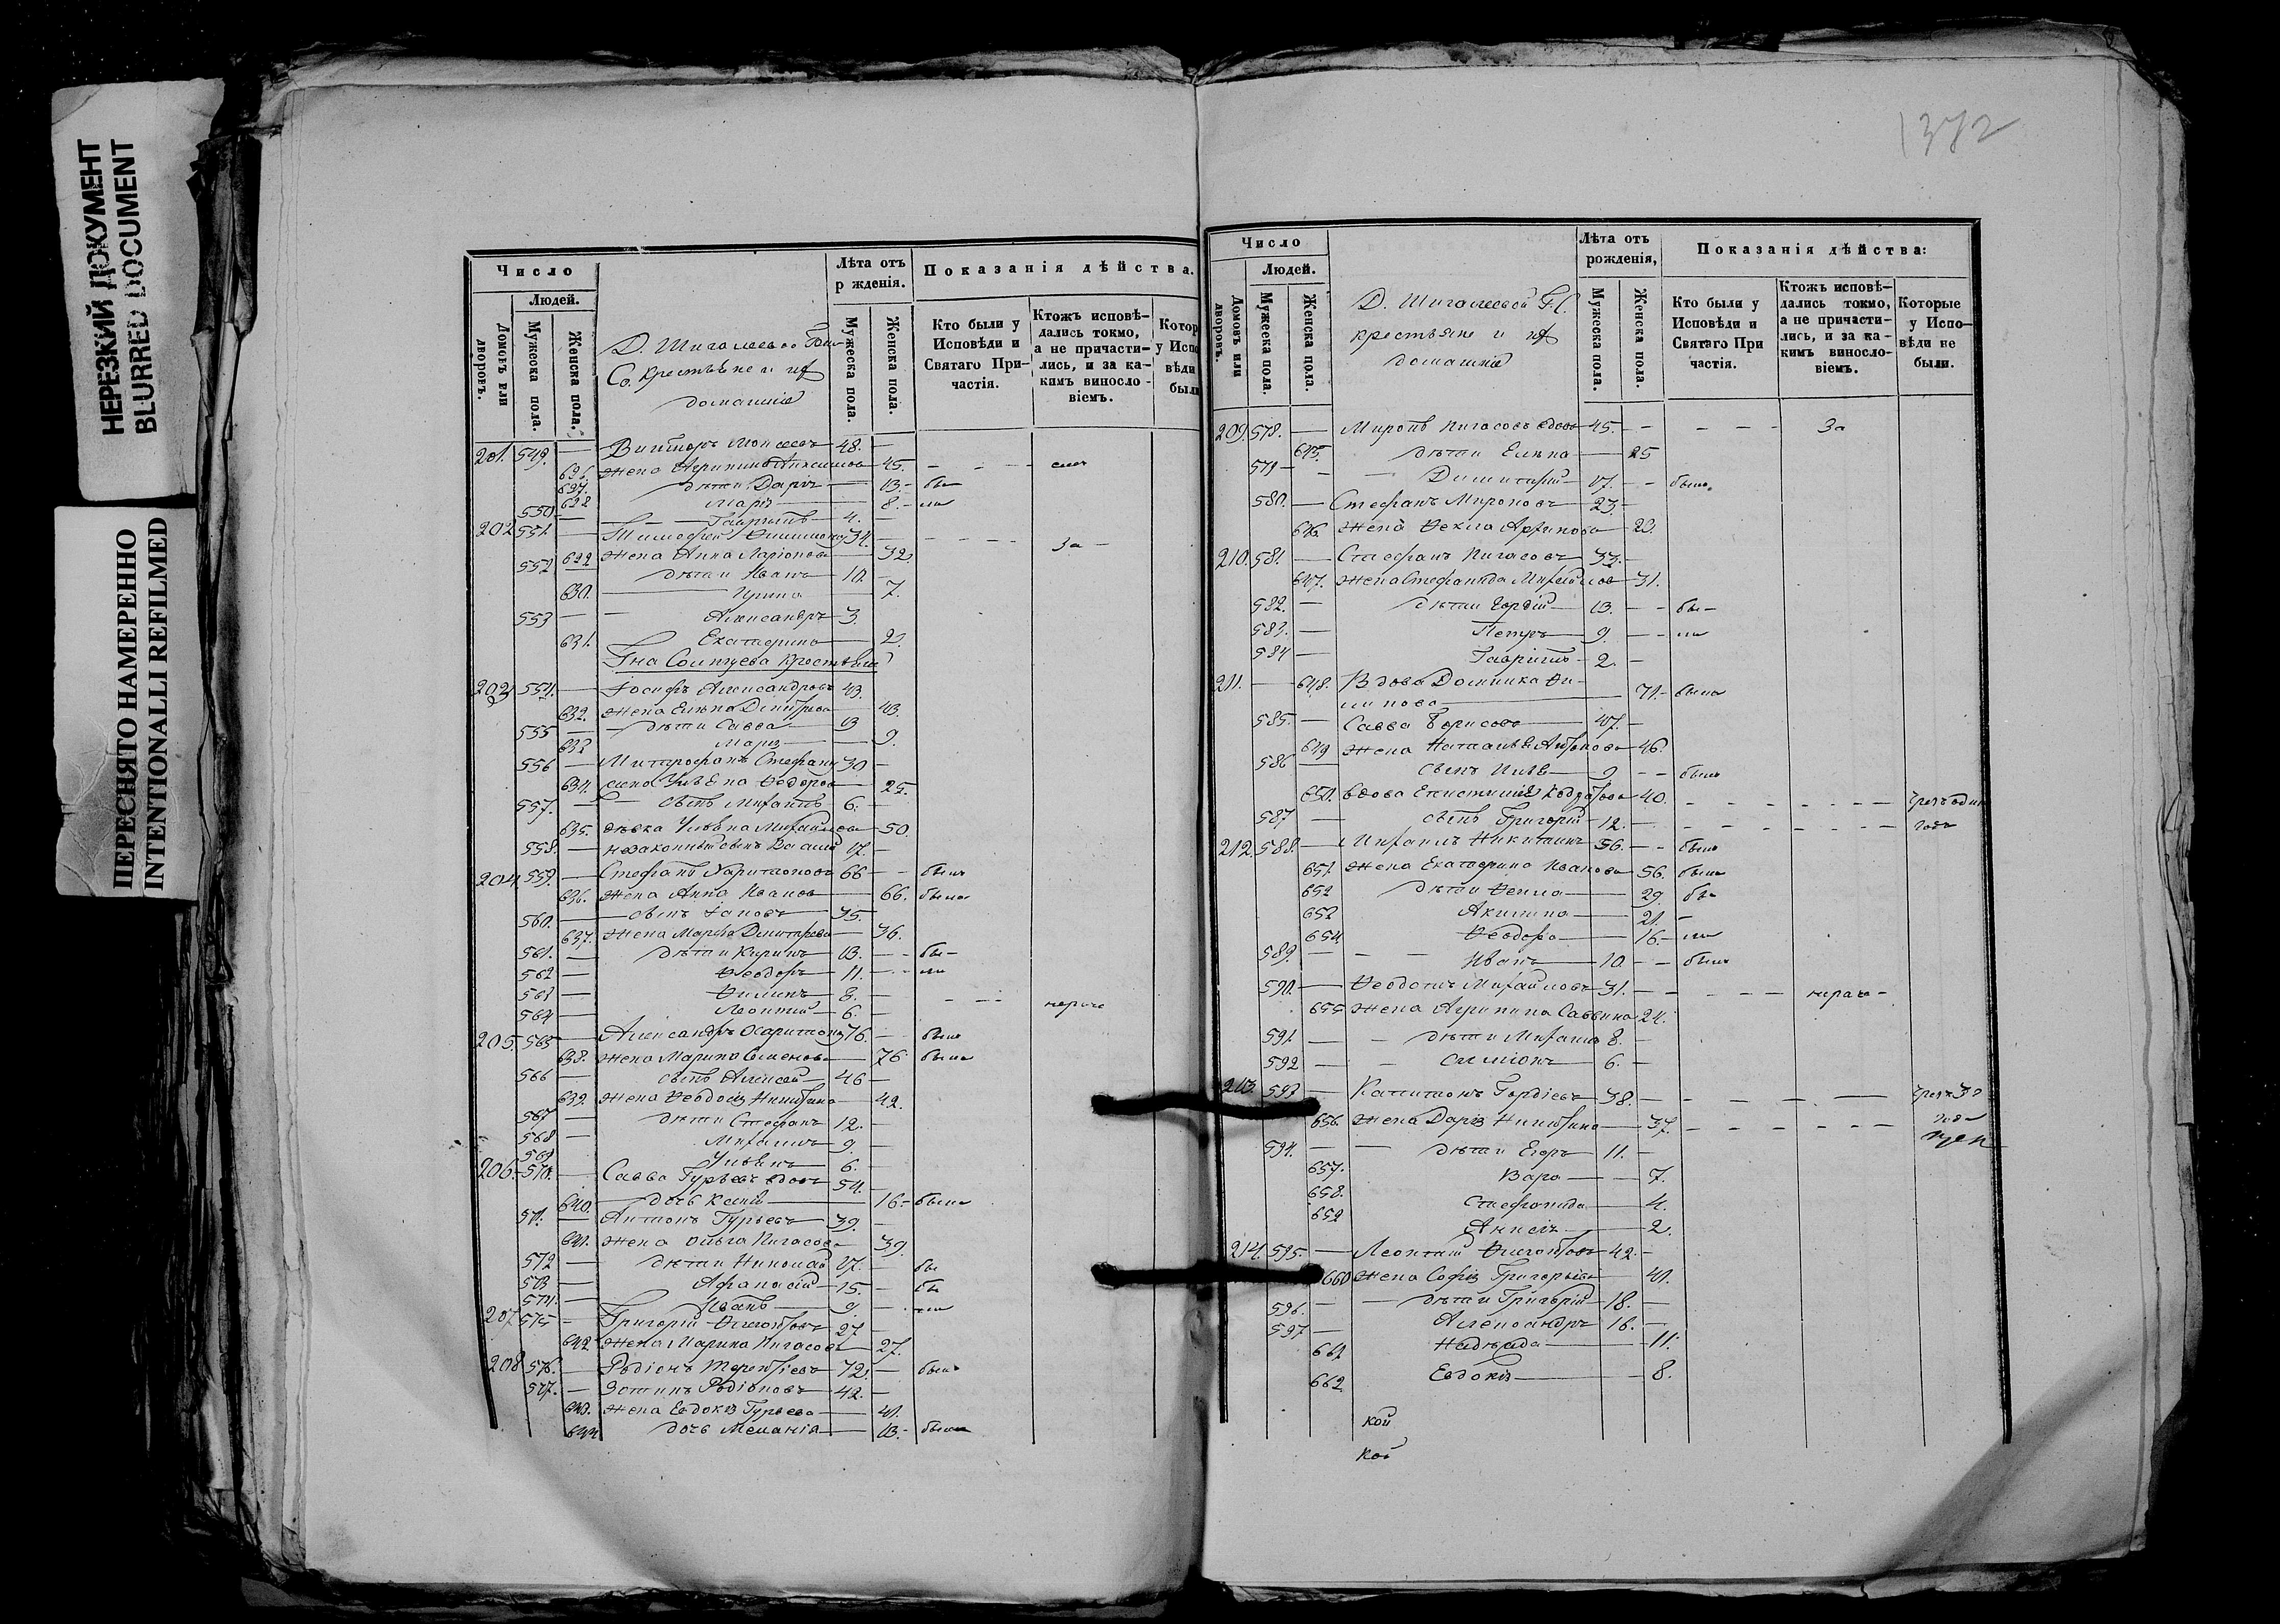 НЕРЕЗКИЙ ДОКУМЕНТ
BLURRED DOCUMENT
ПЕРЕСНЯТО НАМЕРЕННО
INTENTIONALLI REFILMED
Число
Людей.
Домовъ или дворовъ.
Мужеска пола.
Женска пола.
Д.
крестьяне и
домашніе
Лѣта отъ
р жденія.
Мужеска пола.
Женска пола.
Показанія дѣйства.
Кто были у
Исповѣди и
Святаго При-
частія.
Ктожъ исповѣ-
дались токмо,
а не причасти-
лись, и за ка-
кимъ винослo-
віемъ.
Котор
у Испо
вѣди
были
201. 549. — Викторъ Моисеевъ 48. —
626. жена Агрипина 45.
627. дѣти Дарія — 13.
628 Марія — 8.
550 — Гавріилъ — 4. —
202 551. — Тимофей 34.
629 жена Анна Ларіонова — 32 За —
552 дѣти Иванъ — 10. —
630. Ирина — 7.
553 — Александръ — 3.
631. Екатерина — 2.
крестьяне
203 554. — Іосифъ Александровъ 43.
632. жена Елена Дмитріева 43.
555 — дѣти Савва 13
633 Марія — 9.
556 — Митрофанъ Стефанов 30 —
634. жена Ульяна Ѳедорова 25.
557. — сынъ Михаилъ — 6. —
635. дѣвка Ульяна Михайлова 50.
558. — незаконный сынъ 17. —
204 559. — Стефанъ Харитоновъ 66 — былъ
636. жена Анна Иванова 66. была
560. — сынъ 35.
637. жена Марѳа Дмитріева — 36.
561. — дѣти 13. — бы-
562 — Ѳеодоръ — 11. — ли
563 — Филипъ — 8. —
564 — Леонтій — 6. —
205. 565 — Александръ Харитонов 76. — былъ
638. жена Марина Семенова — 76 была
566 — сынъ Алексей — 46 —
639. жена Ѳеодосія Никитина — 42.
567 — дѣти Стефанъ — 12. —
568 — Михаилъ 9. —
569 Ульянъ — 6. —
206. 570. — Савва Гурьевъ вдовъ 54. —
640. дочь — 16. — была
571. — Антонъ Гурьевъ — 39. —
641. жена Ольга Пигасова 39.
572 — дѣти Николай 17. — бы
573 — Афанасій — 15. —
574. — Иванъ — 9. — ли
207 575 — Григорій 27 —
642. жена Марина Пигасова 27.
208 576. — Родіонъ Терентіевъ — 72. — былъ
577. — Зотикъ Родіоновъ — 42. —
643. жена Евдокія Гурьева — 41.
644 дочь Меланія — 13. — была
1372
Число
Людей.
Домовъ или дворовъ.
Мужеска пола
Женска пола.
Д.
крестьяне и
домашніе
Лѣта отъ
рожденія,
Мужеска пола.
Женска пола.
Показанія дѣйства:
Кто были у
Исповѣди и
Святаго При
частія.
Ктожъ исповѣ-
дались токмо,
а не причасти-
лись, и за ка-
кимъ винослo-
віемъ.
Которые
у Испо-
вѣди не
были.
209. 578. — Миронъ Пигасовъ вдовъ 45. — За
645. дѣти Елена — 25
579 — Димитрій — 17. — былъ
580. — Стефанъ Мироновъ — 23. —
646. жена Ѳекла 22.
210. 581. — Стефанъ Пигасовъ — 33. —
647. жена Стефанида Михайлова — 31.
582. — дѣти Гордій — 13. — бы-
583. — Петръ — 9. — ли
584 — Гавріилъ — 2. —
211. — 648. Вдова Домника Фи-
липова — 71. — была
585. — Савва Борисовъ — 47. —
649 жена Наталья 46.
586 — сынъ Илья — 9 — былъ
650. вдова 40. — чрезъ один
587 — сынъ Григорій — 12. — годъ
212. 588. — Михаилъ Никитинъ 56. — былъ
651. жена Екатерина Иванова 56. была
652 дѣти Ѳекла — 29.
653 Акилина — 21. —
654 Ѳеодора — 16. — ли
589. — Иванъ — 10. — былъ
590. — Ѳеодотъ Михайловъ — 31. —
655 жена Агрипина Саввина 24.
591 — дѣти Михаилъ 8. —
592 — Симіонъ — 6. —
213. 593 — Капитонъ Гордіевъ — 38. —
656. жена Дарія Никитина — 37. — года
594. — дѣти Егоръ — 11. —
657. Вара — 7.
658. Стефанида — 4.
659 2.
214. 595. — Леонтій 42. —
660 жена Софія Григорьева 41.
596. — дѣти Григорій — 18. —
597 — Александръ 16. —
661 Надежда — 11.
662 Евдокія — 8.